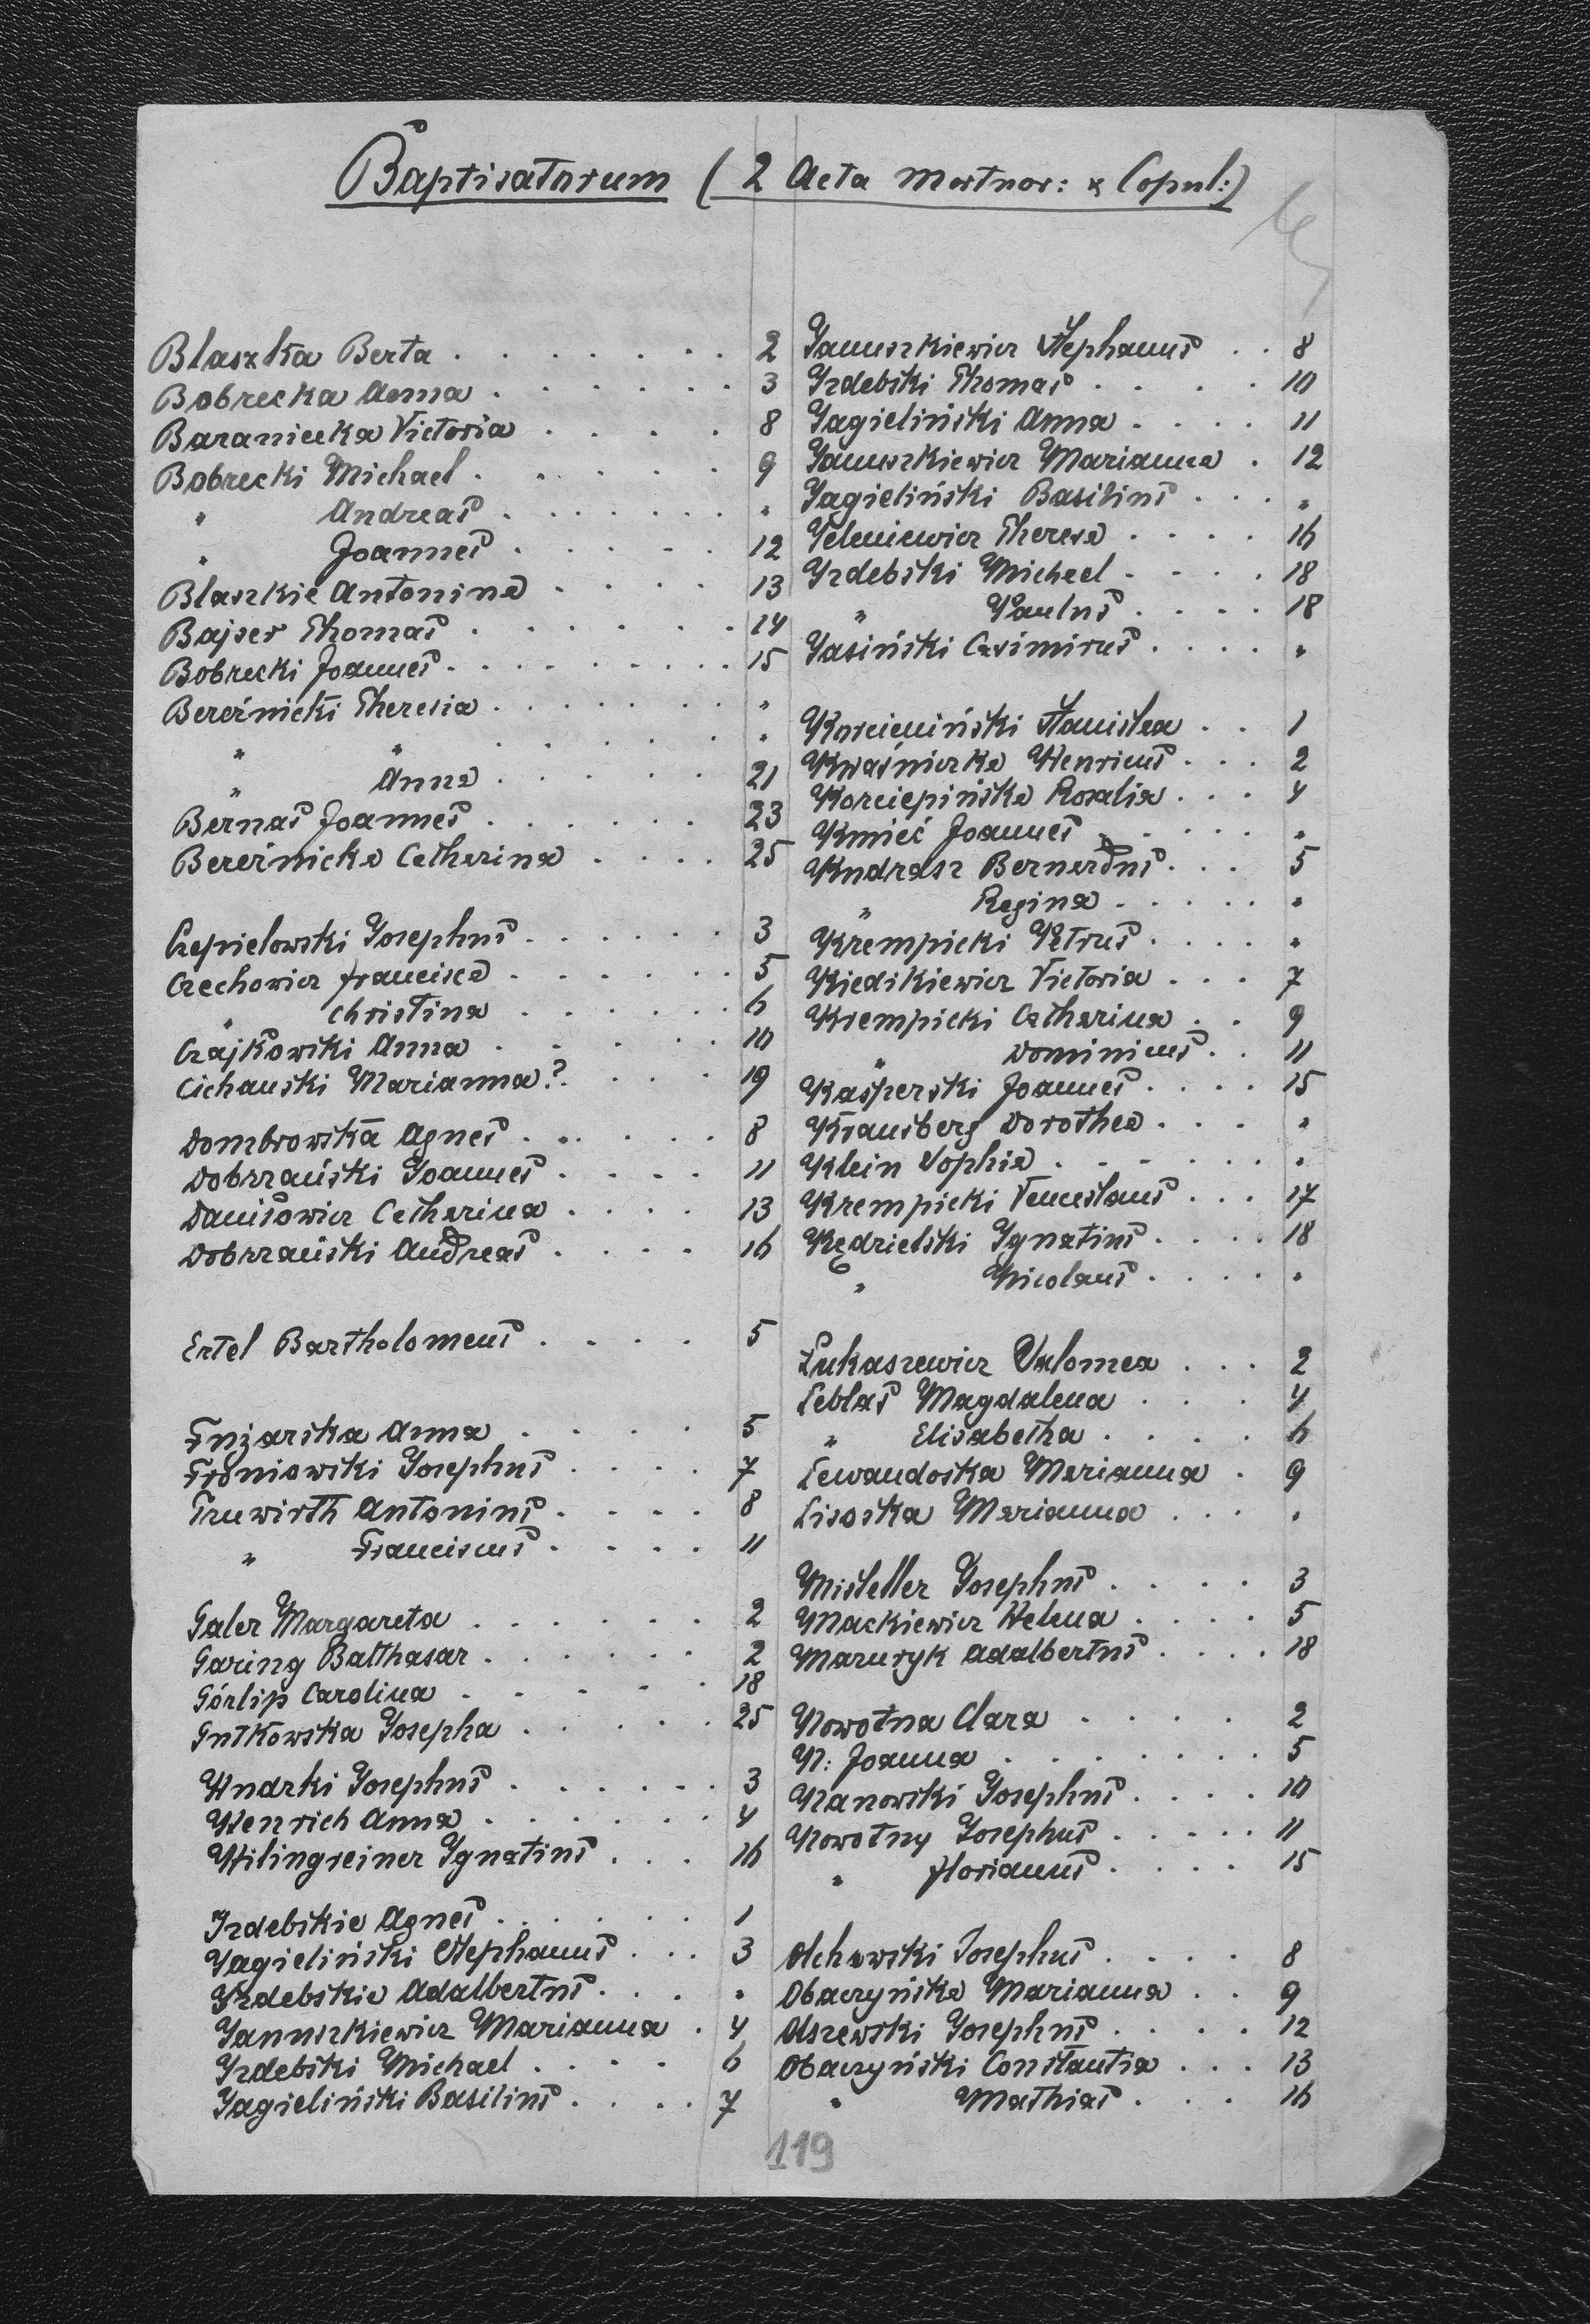 Baptisatorum (2 Acta Mortuor: & Copul:)
Blaszka Berta . . . . . . . 2
Bobrecka Anna . . . . . . 3
Baraniecka Victoria . . . . 8
Bobrecki Michael . . . . . 9
" Andreas . . . . . . . "
" Joannes . . . . . 12
Blaszkie Antonina . . . . 13
Bajser Thomas . . . . . . 14
Bobrecki Joannes . . . . . . . . 15
Bereźnicki Theresia . . . . . . . "
" " . . . . . . "
" Anna . . . . . 21
Bernas Joannes . . . . . . 23
Bereźnicka Catharina . . . . 25
Czepielowski Josephus . . . . . . 3
Czechowicz Francisca . . . . . . 5
" Christina . . . . . . 6
Czajkowski Anna . . . . . . 10
Cichanski Marianna? . . . . 19
Dombrowska Agnes . . . . . . 8
Dobrzański Joannes . . . . 11
Danisowicz Catharina . . . . 13
Dobrzański Andreas . . . . 16
Ertel Bartholomeus . . . . 5
Fuzarska Anna . . . . 5
Froniowski Josephus . . . . 7
Fruwirth Antonius . . . . 8
" Franciscus . . . . 11
Galer Margareta . . . . . . 2
Garing Balthasar . . . . . . 2
Górlip Carolina . . . . . 18
Gutkowska Josepha . . . . . 25
Hudzki Josephus . . . . . . 3
Henrich Anna . . . . . . 4
Hilingreiner Ignatius . . . 16
Izdebskie Agnes . . . . . . 1
Jagieliński Stephanus . . . 3
Izdebskie Adalbertus . . . "
Januszkiewicz Marianna . 4
Izdebski Michael . . . . 6
Jagieliński Basilius . . . . 7
Januszkiewicz Stephanus . . 8
Izdebski Thomas . . . . 10
Jagieliński Anna . . . . 11
Januszkiewicz Marianna . 12
Jagieliński Basilius . . . "
Jeleniewicz Theresa . . . . 16
Izdebski Michael . . . . 18
" Paulus . . . . 18
Jasiński Casimirus . . . . "
Korcieniński Stanislaa . . 1
Kwaśniczka Henricus . . . 2
Korciepińska Rosalia . . . 4
Kmieć Joannes . . . . . "
Kudrasz Bernardus . . . 5
" Regina . . . . . "
Krempicki Petrus . . . . "
Kiedikiewicz Victoria . . . 7
Krempicki Catharina . . 9
" Dominicus . . 11
Kasperski Joannes . . . . 15
Krausberg Dorothea . . . "
Klein Sophia . . . . . . "
Krempicki Venceslaus . . . 17
Kędzielski Ignatius . . . . 18
" Nicolaus . . . . "
Łukaszewicz Salomea . . . 2
Leblas Magdalena . . . . 4
" Elisabetha . . . . 6
Lewandoska Marianna . 9
Lisoska Marianna . . . "
Misteller Josephus . . . . 3
Mackiewicz Helena . . . . 5
Mazuryk Adalbertus . . . . 18
Nowotna Clara . . . . 2
N: Joanna . . . . . . . 5
Nanowski Josephus . . . . 10
Nowotny Josephus . . . . . 11
" Florianus . . . . 15
Olchawski Josephus . . . . 8
Obaczyńska Marianna . . 9
Olszewski Josephus . . . . 12
Obaczyński Constantia . . . 13
" Mathias . . . 16
119